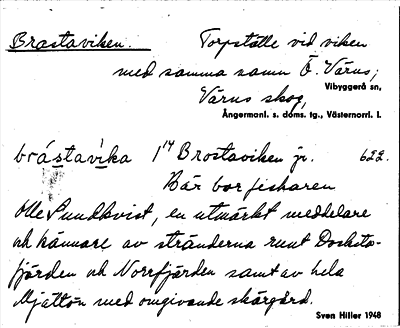 Brostaviken. Torpställe vid viken
med samma namn Ö. Värns;
Vibyggerå sn,
Värns skog,
Ångermanl. s. doms. tg., Västernorrl. l.
bråstavika 1 14 Brostaviken jr. 622.
Här bor fiskaren
Olle Sundkvist, en utmärkt meddelare
och kännare av stränderna runt Docksta-
fjärden och Norrfjärden samt av hela
Mjältön med omgivande skärgård.
Sven Hiller 1948